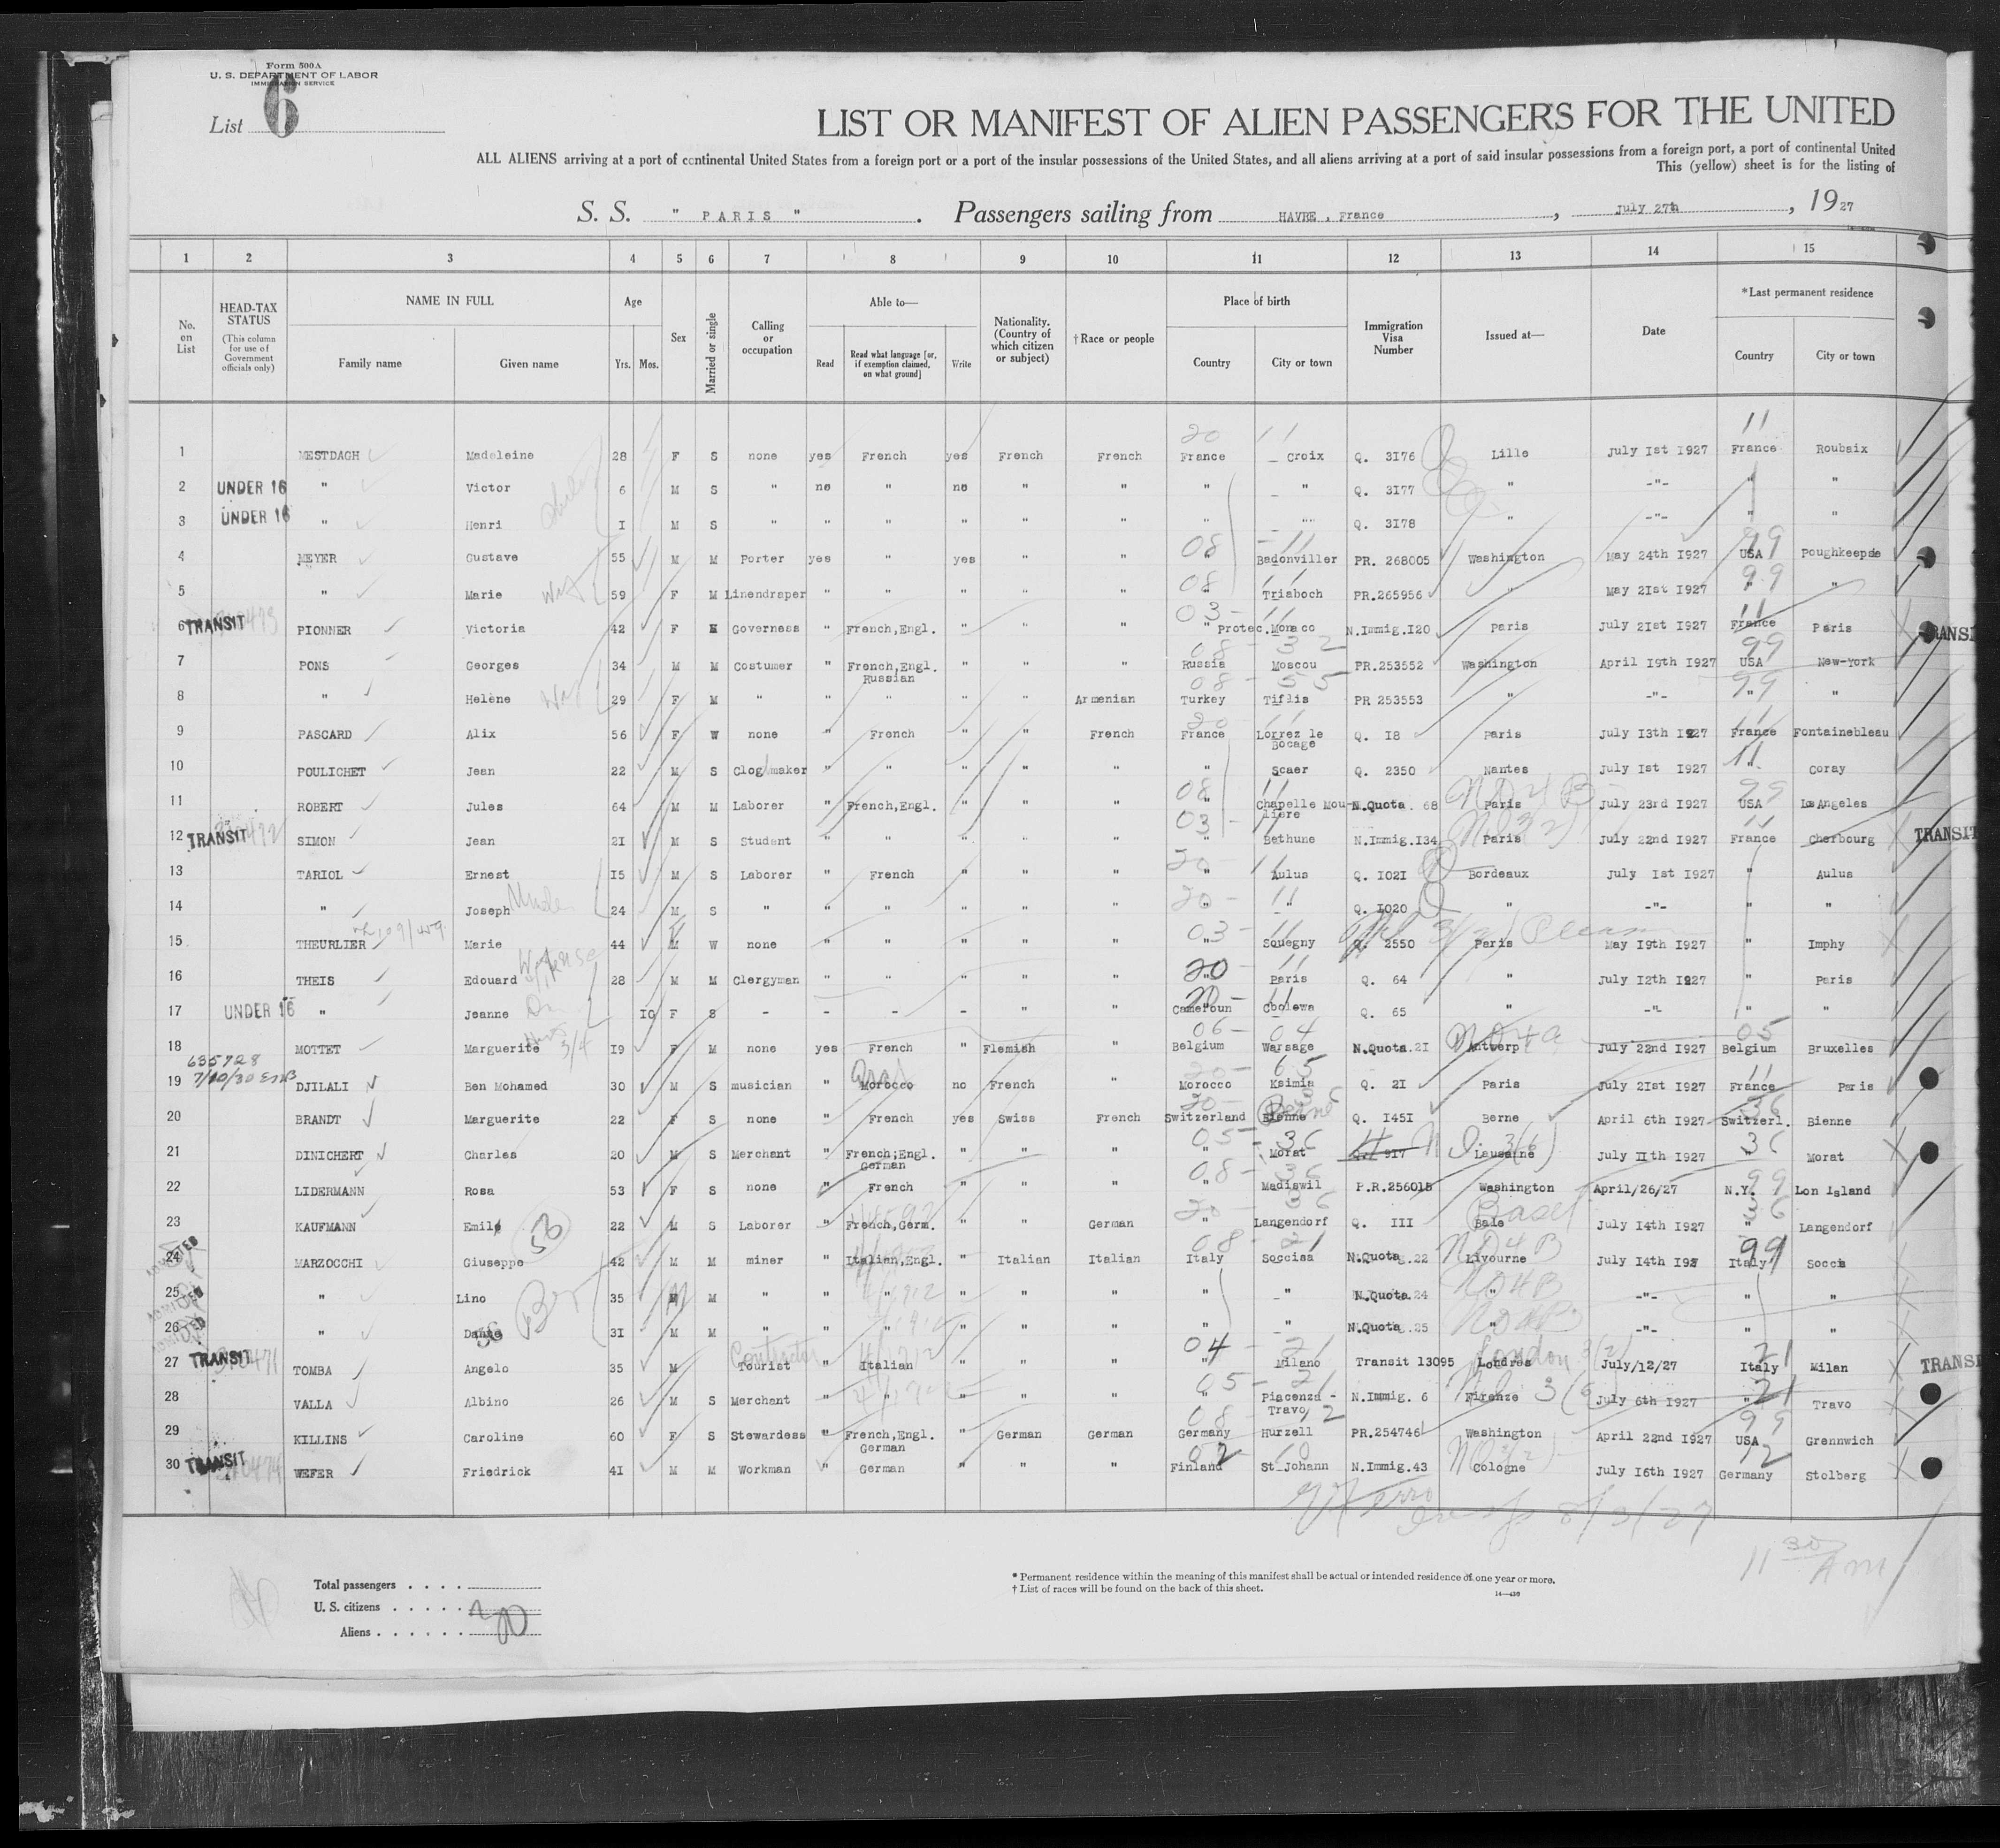 Form 500A
U. S. DEPARTMENT OF LABOR
IMMIGRATION SERVICE
List 6
LIST OR MANIFEST OF ALIEN PASSENGERS FOR THE UNITED
ALL ALIENS arriving at a port of continental United States from a foreign port or a port of the insular possessions of the United States, and all aliens arriving at a port of said insular possessions from a foreign port, a port of continental United
This (yellow) sheet is for the listing of
S. S. " PARIS " . Passengers sailing from HAVRE , France , July 27th , 1927
1 2 3 4 5 6 7 8 9 10 11 12 13 14 15
No. on List HEAD-TAX STATUS (This column for use of Government officials only) NAME IN FULL Family name Given name Age Yrs. Mos. Sex Married or single Calling or occupation Able to— Read Read what language [or, if exemption claimed, on what ground] Write Nationality. (Country of which citizen or subject) †Race or people Place of birth Country City or town Immigration Visa Number Issued at— Date *Last permanent residence Country City or town
1 MESTDAGH Madeleine 28 F S none yes French yes French French France Croix Q. 3I76 Lille July Ist I927 France Roubaix
2 UNDER 16 " Victor 6 M S " no " no " " " " Q. 3I77 " -"- " "
3 UNDER 16 " Henri I M S " " " " " " " "" Q. 3I78 " -"- " "
4 MEYER Gustave 55 M M Porter yes " yes " " " Badonviller PR. 268005 Washington May 24th I927 USA Poughkeepsie
5 " Marie 59 F M Linendraper " " " " " " Triaboch PR.265956 " May 2Ist I927 " "
6 TRANSIT PIONNER Victoria 42 F Governess " French,Engl. " " " " Protec.Monaco N.Immig.I20 Paris July 2Ist I927 France Paris TRANSIT
7 PONS Georges 34 M M Costumer " French,Engl. Russian " " " Russia Moscou PR.253552 Washington April I9th I927 USA New-York
8 " Helène 29 F M " " " " " Armenian Turkey Tiflis PR 253553 " -"- " "
9 PASCARD Alix 56 F W none " French " " French France Lorrez le Bocage Q. I8 Paris July I3th I927 France Fontainebleau
10 POULICHET Jean 22 M S Clog maker " " " " " " Scaer Q. 2350 Nantes July Ist I927 " Coray
11 ROBERT Jules 64 M M Laborer " French,Engl. " " " " Chapelle Mouliere N.Quota. 68 Paris July 23rd I927 USA Los Angeles
12 TRANSIT SIMON Jean 2I M S Student " " " " " " Bethune N.Immig.I34 Paris July 22nd I927 France Cherbourg TRANSIT
13 TARIOL Ernest I5 M S Laborer " French " " " " Aulus Q. I02I Bordeaux July Ist I927 " Aulus
14 " Joseph 24 M S " " " " " " " " Q. I020 " -"- " "
15 THEURLIER Marie 44 W none " " " " " " Sougny 2550 Paris May I9th I927 " Imphy
16 THEIS Edouard 28 M M Clergyman " " " " " " Paris Q. 64 " July I2th I927 " Paris
17 UNDER 16 " Jeanne IO F S - - - - " " Cameroun Q. 65 " -"- " "
18 MOTTET Marguerite I9 F M none yes French " Flemish " Belgium Warsage N.Quota.2I Antwerp July 22nd I927 Belgium Bruxelles
635728
7/10/30
19 DJILALI Ben Mohamed 30 M S musician " Morocco no French " Morocco Ksimia Q. 2I Paris July 2Ist I927 France Paris
20 BRANDT Marguerite 22 F S none " French yes Swiss French Switzerland Bienne Berne Q. I45I Berne April 6th I927 Switzerl. Bienne
21 DINICHERT Charles 20 M S Merchant " French;Engl. German " " " " Morat 917 Lausanne July IIth I927 " Morat
22 LIDERMANN Rosa 53 F S none " French " " " " Madiswil P.R.256015 Washington April/26/27 N.Y. Lon Island
23 KAUFMANN Emile 22 M S Laborer " French,Germ. " " German " Langendorf Q. III Bale Basel July I4th I927 " Langendorf
24 MARZOCCHI Giuseppe 42 M M miner " Italian,Engl. " Italian Italian Italy Soccisa N.Quota.22 Livourne July I4th I927 Italy
25 " Lino 35 M M " " " " " " " " N.Quota.24 " -"- " "
26 " Dante 3I M M " " " " " " " " N.Quota.25 " -"- " "
27 TRANSIT TOMBA Angelo 35 M Tourist " Italian " " " " Milano Transit I3095 Londres London July/12/27 Italy Milan TRANSIT
28 VALLA Albino 26 M S Merchant " " " " " " Piacenza - Travo N.Immig. 6 Firenze July 6th I927 " Travo
29 KILLINS Caroline 60 F S Stewardess " French,Engl. German " German German Germany Hurzell PR.254746 Washington April 22nd I927 USA Grennwich
30 TRANSIT WEFER Friedrick 4I M M Workman " German " " " Finland St Johann N.Immig.43 Cologne July I6th I927 Germany Stolberg
8/3/27
11 30 AM
Total passengers . . . .
U. S. citizens . . . . .
Aliens . . . . . . 30
* Permanent residence within the meaning of this manifest shall be actual or intended residence of one year or more.
† List of races will be found on the back of this sheet.